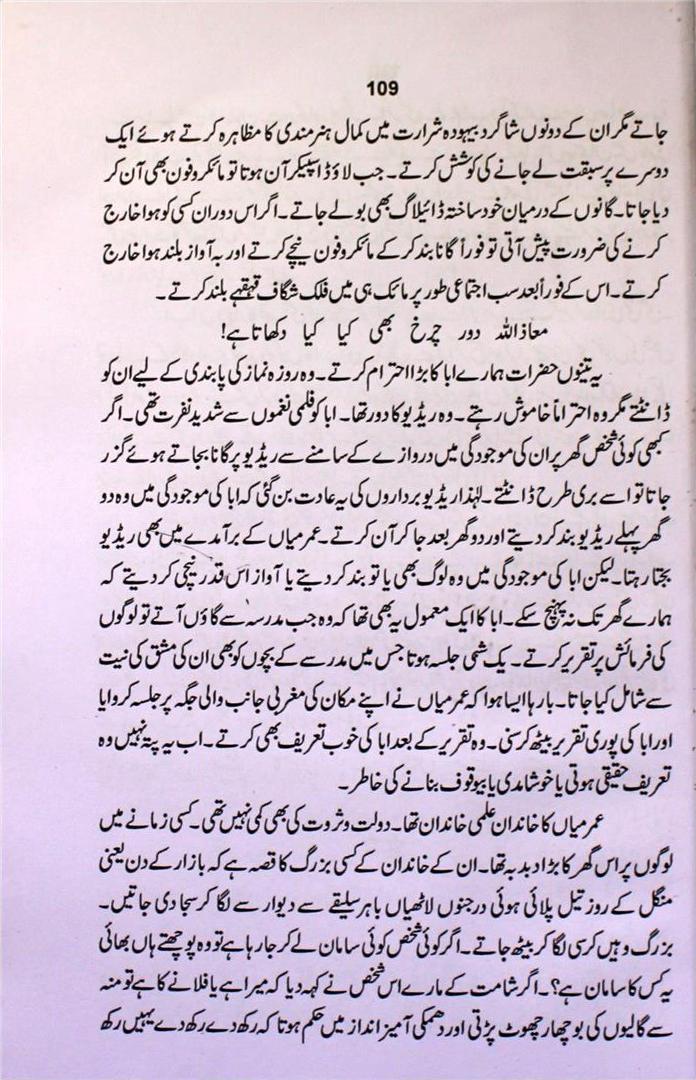 109
جاتے مگر ان کے دونوں شاگرد بیہودہ شرارت میں کمال ہنرمندی کا مظاہرہ کرتے ہوئے ایک
دوسرے پر سبقت لے جانے کی کوشش کرتے۔ جب لاؤڈ اسپیکر آن ہوتا تو مائکروفون بھی آن کر
دیا جاتا۔ گانوں کے درمیان خود ساختہ ڈائیلاگ بھی بولے جاتے۔ اگر اس دوران کسی کو ہوا خارج
کرنے کی ضرورت پیش آتی تو فوراً گانا بند کر کے مائکروفون نیچے کرتے اور بہ آواز بلند ہوا خارج
کرتے۔ اس کے فوراً بعد سب اجتماعی طور پر مائک ہی میں فلک شگاف قہقہے بلند کرتے۔
معاذ اللہ دور چرخ بھی کیا کیا دکھاتا ہے!
یہ تینوں حضرات ہمارے ابا کا بڑا احترام کرتے۔ وہ روزہ نماز کی پابندی کے لیے ان کو
ڈانٹتے مگر وہ احتراماً خاموش رہتے۔ وہ ریڈیو کا دور تھا۔ ابا کو فلمی نغموں سے شدید نفرت تھی۔ اگر
کبھی کوئی شخص گھر پر ان کی موجودگی میں دروازے کے سامنے سے ریڈیو پر گانا بجاتے ہوئے گزر
جاتا تو اسے بری طرح ڈانٹتے۔ لہٰذا ریڈیو برداروں کی یہ عادت بن گئی کہ ابا کی موجودگی میں وہ دو
گھر پہلے ریڈیو بند کر دیتے اور دو گھر بعد جا کر آن کرتے۔ عمر میاں کے برآمدے میں بھی ریڈیو
بجتا رہتا۔ لیکن ابا کی موجودگی میں وہ لوگ بھی یا تو بند کر دیتے یا آواز اس قدر نیچی کر دیتے کہ
ہمارے گھر تک نہ پہنچ سکے۔ ابا کا ایک معمول یہ بھی تھا کہ وہ جب مدرسہ سے گاؤں آتے تو لوگوں
کی فرمائش پر تقریر کرتے۔ یک شمی جلسہ ہوتا جس میں مدرسے کے بچوں کو بھی ان کی مشق کی نیت
سے شامل کیا جاتا۔ بارہا ایسا ہوا کہ عمر میاں نے اپنے مکان کی مغربی جانب والی جگہ پر جلسہ کروایا
اور ابا کی پوری تقریر بیٹھ کر سنی۔ وہ تقریر کے بعد ابا کی خوب تعریف بھی کرتے۔ اب یہ پتہ نہیں وہ
تعریف حقیقی ہوتی یا خوشامدی یا بیوقوف بنانے کی خاطر۔
عمر میاں کا خاندان علمی خاندان تھا۔ دولت و ثروت کی بھی کمی نہیں تھی۔ کسی زمانے میں
لوگوں پر اس گھر کا بڑا دبدبہ تھا۔ ان کے خاندان کے کسی بزرگ کا قصہ ہے کہ بازار کے دن یعنی
منگل کے روز تیل پلائی ہوئی درجنوں لاٹھیاں باہر سلیقے سے دیوار سے لگا کر سجا دی جاتیں۔
بزرگ وہیں کرسی لگا کر بیٹھ جاتے۔ اگر کوئی شخص کوئی سامان لے کر جا رہا ہے تو وہ پوچھتے ہاں بھائی
یہ کس کا سامان ہے؟۔ اگر شامت کے مارے اس شخص نے کہہ دیا کہ میرا ہے یا فلانے کا ہے تو منہ
سے گالیوں کی بوچھار چھوٹ پڑتی اور دھمکی آمیز انداز میں حکم ہوتا کہ رکھ دے رکھ دے یہیں رکھ